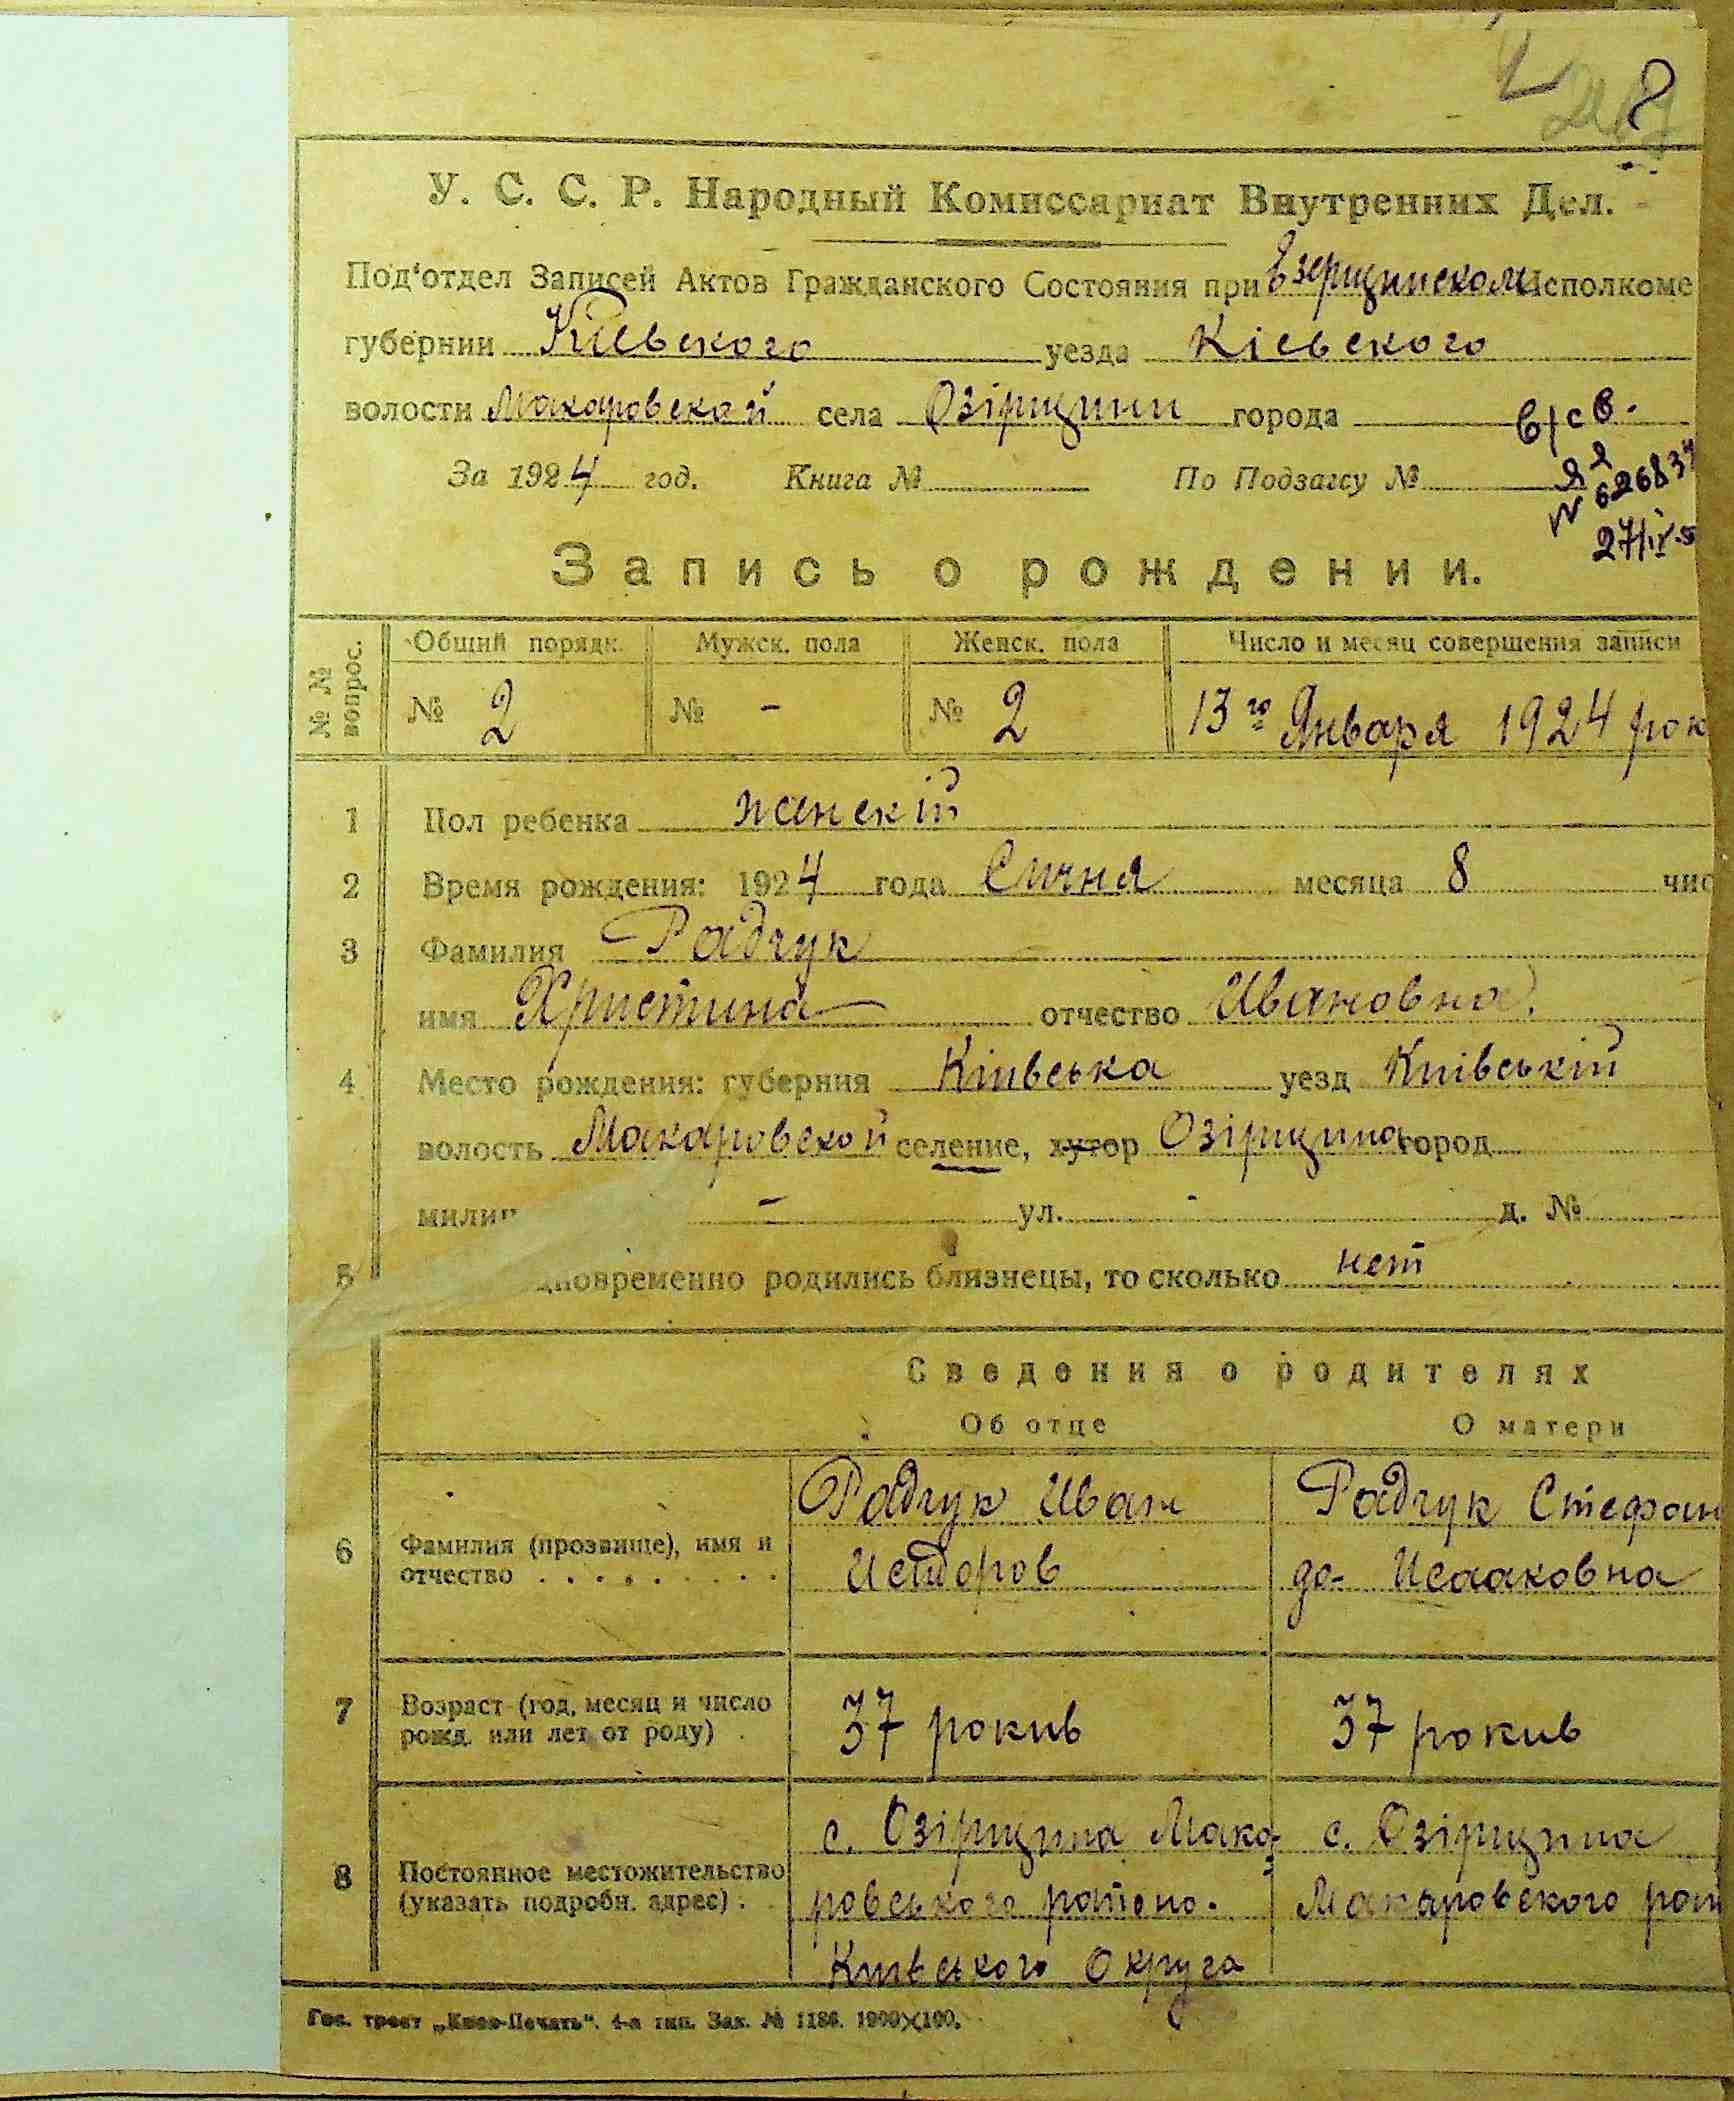 8
У. С. С. Р. Народный Комиссариат Внутренних Дел.
Под'отдел Записей Актов Гражданского Состояния при Езерщинском Исполкоме
губернии Киевского уезда Кіевского
волости Макаровской села Озірщини города
в/св.
За 1924 год. Книга № По Подзагсу №
ЯЯ
№ 626837
27/IV-5
Запись о рождении.
№ № вопрос.
Общий порядк. Мужск. пола Женск. пола Число и месяц совершения записи
№ 2 № - № 2 13го Января 1924 рок
1 Пол ребенка женскій
2 Время рождения: 1924 года Січня месяца 8 чис
3 Фамилия Радчук
имя Христина отчество Ивановна.
4 Место рождения: губерния Київська уезд Київській
волость Макаровской селение, хутор Озірщина город
милиц - ул. - д. №
5 дновременно родились близнецы, то сколько нет
Сведения о родителях
Об отце О матери
6 Фамилия (прозвище), имя и отчество . . . . . . . . .
Радчук Иван
Исидоров
Радчук Стефан
да- Исааковна
7 Возраст (год, месяц и число рожд. или лет от роду) .
37 рокив
37 рокив
8 Постоянное местожительство (указать подробн. адрес) .
с. Озірщина Мака-
ровського района.
Київського Округа
с. Озірщина
Макаровского рай
Гос. трест „Киев-Печать“. 4-я тип. Зак. № 1186. 1000×100.